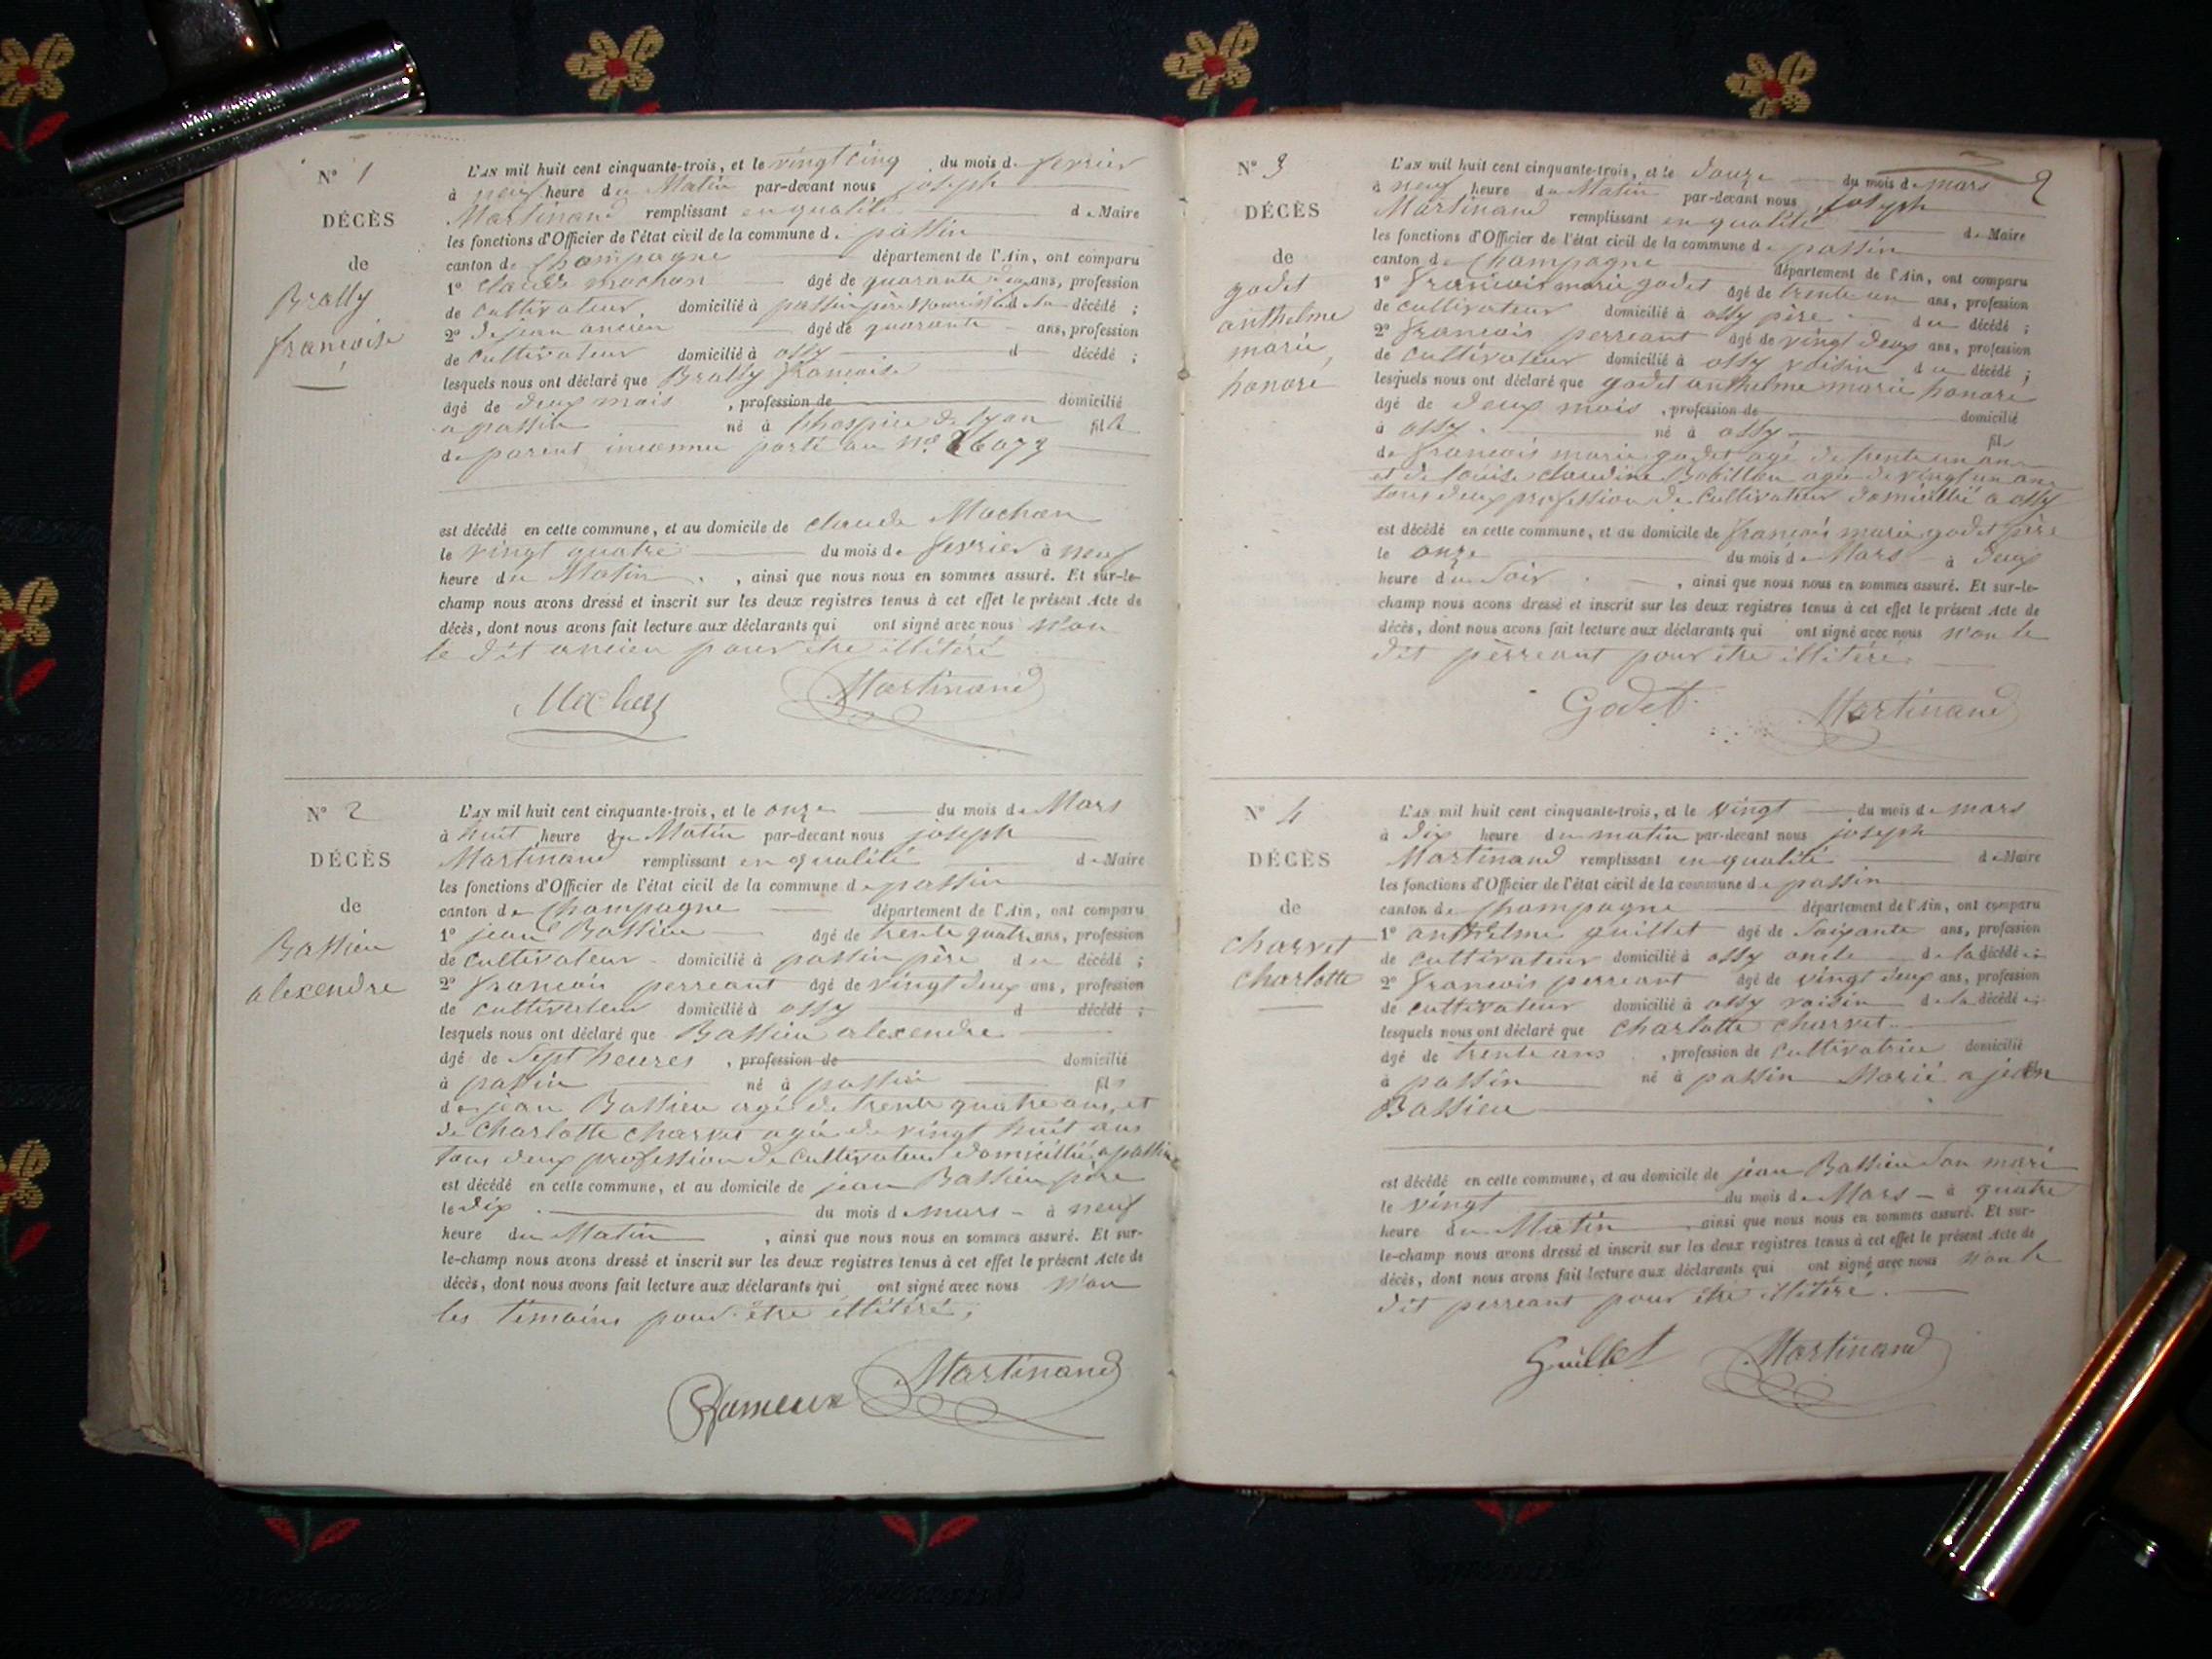 N° 1
DÉCÈS
de
Brally
francoise
L'AN mil huit cent cinquante-trois, et le vingt cinq du mois de fevrier
à neuf heure du Matin par-devant nous joseph
Martinand remplissant en qualité de Maire
les fonctions d'Officier de l'état civil de la commune de passin
canton de Champagne département de l'Ain, ont comparu
1° claude mochon âgé de quarante ans, profession
de cultivateur, domicilié à passin père de la décédé ;
2° dejean ancien âgé de quarante ans, profession
de cultivateur domicilié à ossy d décédé ;
lesquels nous ont déclaré que Brally francoise
âgé de deux mois , profession de domicilié
a passin né à l'hospice de lyon fil
de parent inconnu porté au N°. 26073
est décédé en cette commune, et au domicile de claude Mochon
le vingt quatre du mois de fevrier à neuf
heure du Matin , ainsi que nous nous en sommes assuré. Et sur-le-
champ nous avons dressé et inscrit sur les deux registres tenus à cet effet le présent Acte de
décès, dont nous avons fait lecture aux déclarants qui ont signé avec nous non
le dit ancien pour être illitéré
Mochon Martinand
N° 2
DÉCÈS
de
Bassieu
alexendre
L'AN mil huit cent cinquante-trois, et le onze du mois de Mars
à huit heure du Matin par-devant nous joseph
Martinand remplissant en qualité de Maire
les fonctions d'Officier de l'état civil de la commune de passin
canton de Champagne département de l'Ain, ont comparu
1° jean Bassieu âgé de trente quatre ans, profession
de cultivateur domicilié à passin père du décédé ;
2° francois perreant âgé de vingt deux ans, profession
de cultivateur domicilié à ossy d décédé ;
lesquels nous ont déclaré que Bassieu alexendre
âgé de sept heures , profession de domicilié
à passin né à passin fils
de jean Bassieu agé de trente quatre ans, et
de Charlotte charvet agée de vingt huit ans
tous deux profession de cultivateur domicillié a passin
est décédé en cette commune, et au domicile de jean Bassieu père
le dix du mois de mars à neuf
heure du Matin , ainsi que nous nous en sommes assuré. Et sur-
le-champ nous avons dressé et inscrit sur les deux registres tenus à cet effet le présent Acte de
décès, dont nous avons fait lecture aux déclarants qui ont signé avec nous non
les témoins pour être illitéré,
Martinand
N° 3
DÉCÈS
de
godet
anthelme
marie
honoré
2
L'AN mil huit cent cinquante-trois, et le douze du mois de mars
à neuf heure du Matin par-devant nous joseph
Martinand remplissant en qualité de Maire
les fonctions d'Officier de l'état civil de la commune de passin
canton de Champagne département de l'Ain, ont comparu
1° francois marie godet âgé de trente un ans, profession
de cultivateur domicilié à ossy père du décédé ;
2° francois perreant âgé de vingt deux ans, profession
de cultivateur domicilié à ossy voisin du décédé ;
lesquels nous ont déclaré que godet anthelme marie honoré
âgé de deux mois , profession de domicilié
à ossy né à ossy fils
de francois marie godet agé de trente un an
et de louise claudine Bobillon agée de vingt un an
tous deux profession de Cultivateur domicillié a ossy
est décédé en cette commune, et au domicile de francois marie godet père
le onze du mois de Mars à deux
heure du soir , ainsi que nous nous en sommes assuré. Et sur-le-
champ nous avons dressé et inscrit sur les deux registres tenus à cet effet le présent Acte de
décès, dont nous avons fait lecture aux déclarants qui ont signé avec nous non le
dit perreant pour être illitéré.
Godet Martinand
N° 4
DÉCÈS
de
charvet
charlotte
L'AN mil huit cent cinquante-trois, et le vingt du mois de mars
à dix heure du matin par-devant nous joseph
Martinand remplissant en qualité de Maire
les fonctions d'Officier de l'état civil de la commune de passin
canton de Champagne département de l'Ain, ont comparu
1° anthelme guillet âgé de soixante ans, profession
de cultivateur domicilié à ossy oncle de la décédé ;
2° francois perreant âgé de vingt deux ans, profession
de cultivateur domicilié à ossy voisin de la décédé ;
lesquels nous ont déclaré que charlotte charvet
âgé de trente ans , profession de cultivatrice domicilié
à passin né à passin Marié a jean
Bassieu
est décédé en cette commune, et au domicile de jean Bassieu son mari
le vingt du mois de Mars à quatre
heure du Matin , ainsi que nous nous en sommes assuré. Et sur-
le-champ nous avons dressé et inscrit sur les deux registres tenus à cet effet le présent Acte de
décès, dont nous avons fait lecture aux déclarants qui ont signé avec nous non le
dit perreant pour être illitéré.
Guillet Martinand